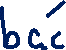 bác